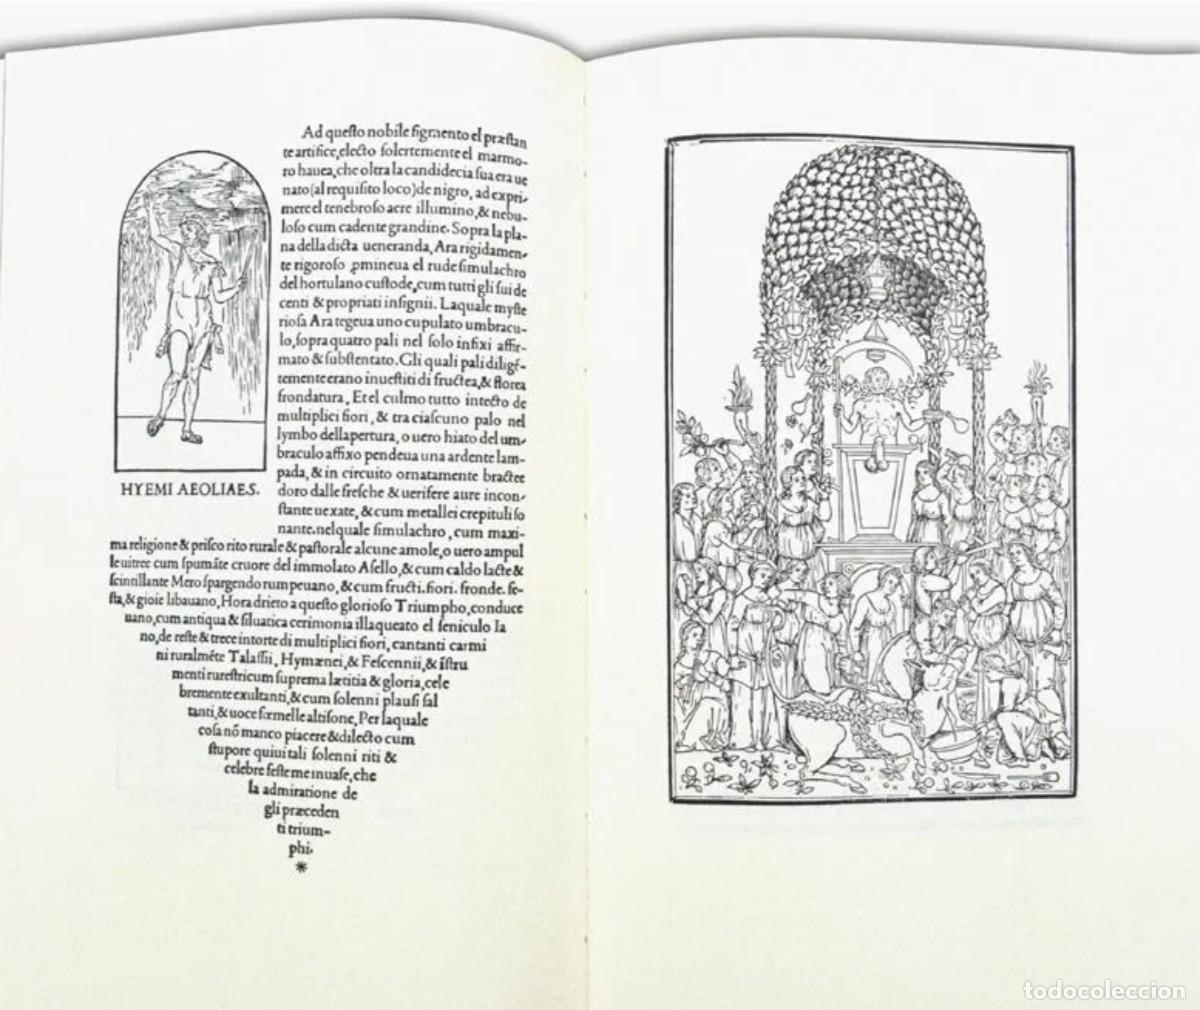 Ad questo nobile figmento el præstan
te artifice, electo solertemente el marmo-
ro hauea, che oltra la candidecia sua era ue
nato (al requisito loco) de nigro, ad expri-
mere el tenebroso aere illumino, & nebu-
loso cum cadente grandine. Sopra la pla-
na della dicta ueneranda, Ara rigidamen-
te rigoroso ꝓmineua el rude simulachro
del hortulano custode, cum tutti gli sui de
centi & propriati insignii. Laquale myste
riosa Ara tegeua uno cupulato umbracu-
lo, sopra quatro pali nel solo infixi affir-
mato & substentato. Gli quali pali diligē-
temente erano inuestiti di fructea, & florea
frondatura, Et el culmo tutto intecto de
multiplici fiori, & tra ciascuno palo nel
lymbo dellapertura, o uero hiato del um-
braculo affixo pendeua una ardente lam-
pada, & in circuito ornatamente bractee
doro dalle fresche & uerifere aure incon-
stante uexate, & cum metallei crepituli so
nante. nelquale simulachro, cum maxi-
HYEMI AEOLIAE S.
ma religione & prisco rito rurale & pastorale alcune amole, o uero ampul
le uitree cum spumāte cruore del immolato Asello, & cum caldo lacte &
scintillante Mero spargendo rumpeuano, & cum fructi. fiori. fronde. fe-
sta, & gioie libauano, Hora drieto a questo glorioso Triumpho, conduce
uano, cum antiqua & siluatica cerimonia illaqueato el seniculo Ia
no, de reste & trece intorte di multiplici fiori, cantanti carmi
ni ruralmēte Talassii, Hymænei, & Fescennii, & īstru
menti rurestri cum suprema lætitia & gloria, cele
bremente exultanti, & cum solenni plausi sal
tanti, & uoce fœmelle altisone, Per laquale
cosa nō manco piacere & dilecto cum
stupore quiui tali solenni riti &
celebre feste me inuase, che
la admiratione de
gli præceden
ti trium-
phi.
*
todocoleccion